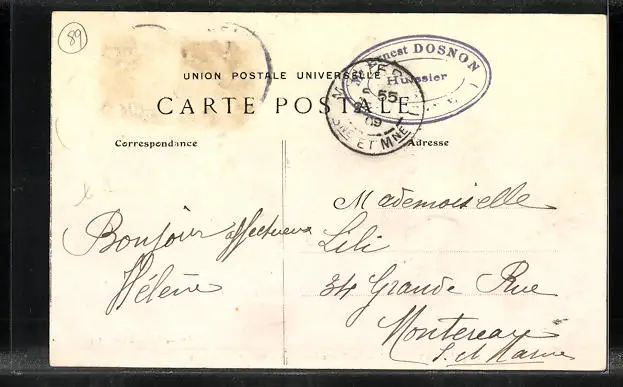 89
UNION POSTALE UNIVERSELLE
CARTE POSTALE
Ernest DOSNON
Huissier
55
09
SNE ET MNE
Correspondance
Adresse
Bonjour affectueux
Hélène
Mademoiselle
Lili
34 Grande Rue
Montereau
S. et Marne